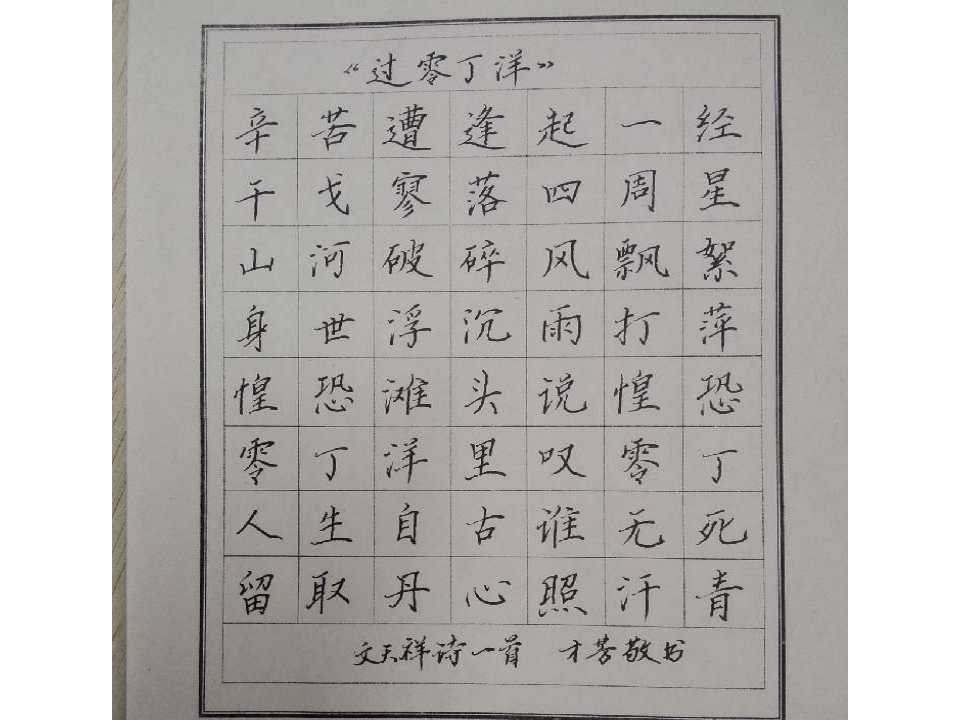 “过零丁洋”
辛苦遭逢起一经
干戈寥落四周星
山河破碎风飘絮
身世浮沉雨打萍
惶恐滩头说惶恐
零丁洋里叹零丁
人生自古谁无死
留取丹心照汗青
文天祥诗一首 才芳敬书